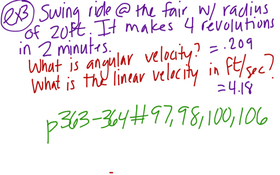 ex3 Swing ride @ the fair w/ radius
of 20ft. It makes 4 revolutions
in 2 minutes.
What is angular velocity? = .209
What is the linear velocity in ft/sec?
= 4.18
p363-364 # 97, 98, 100, 106